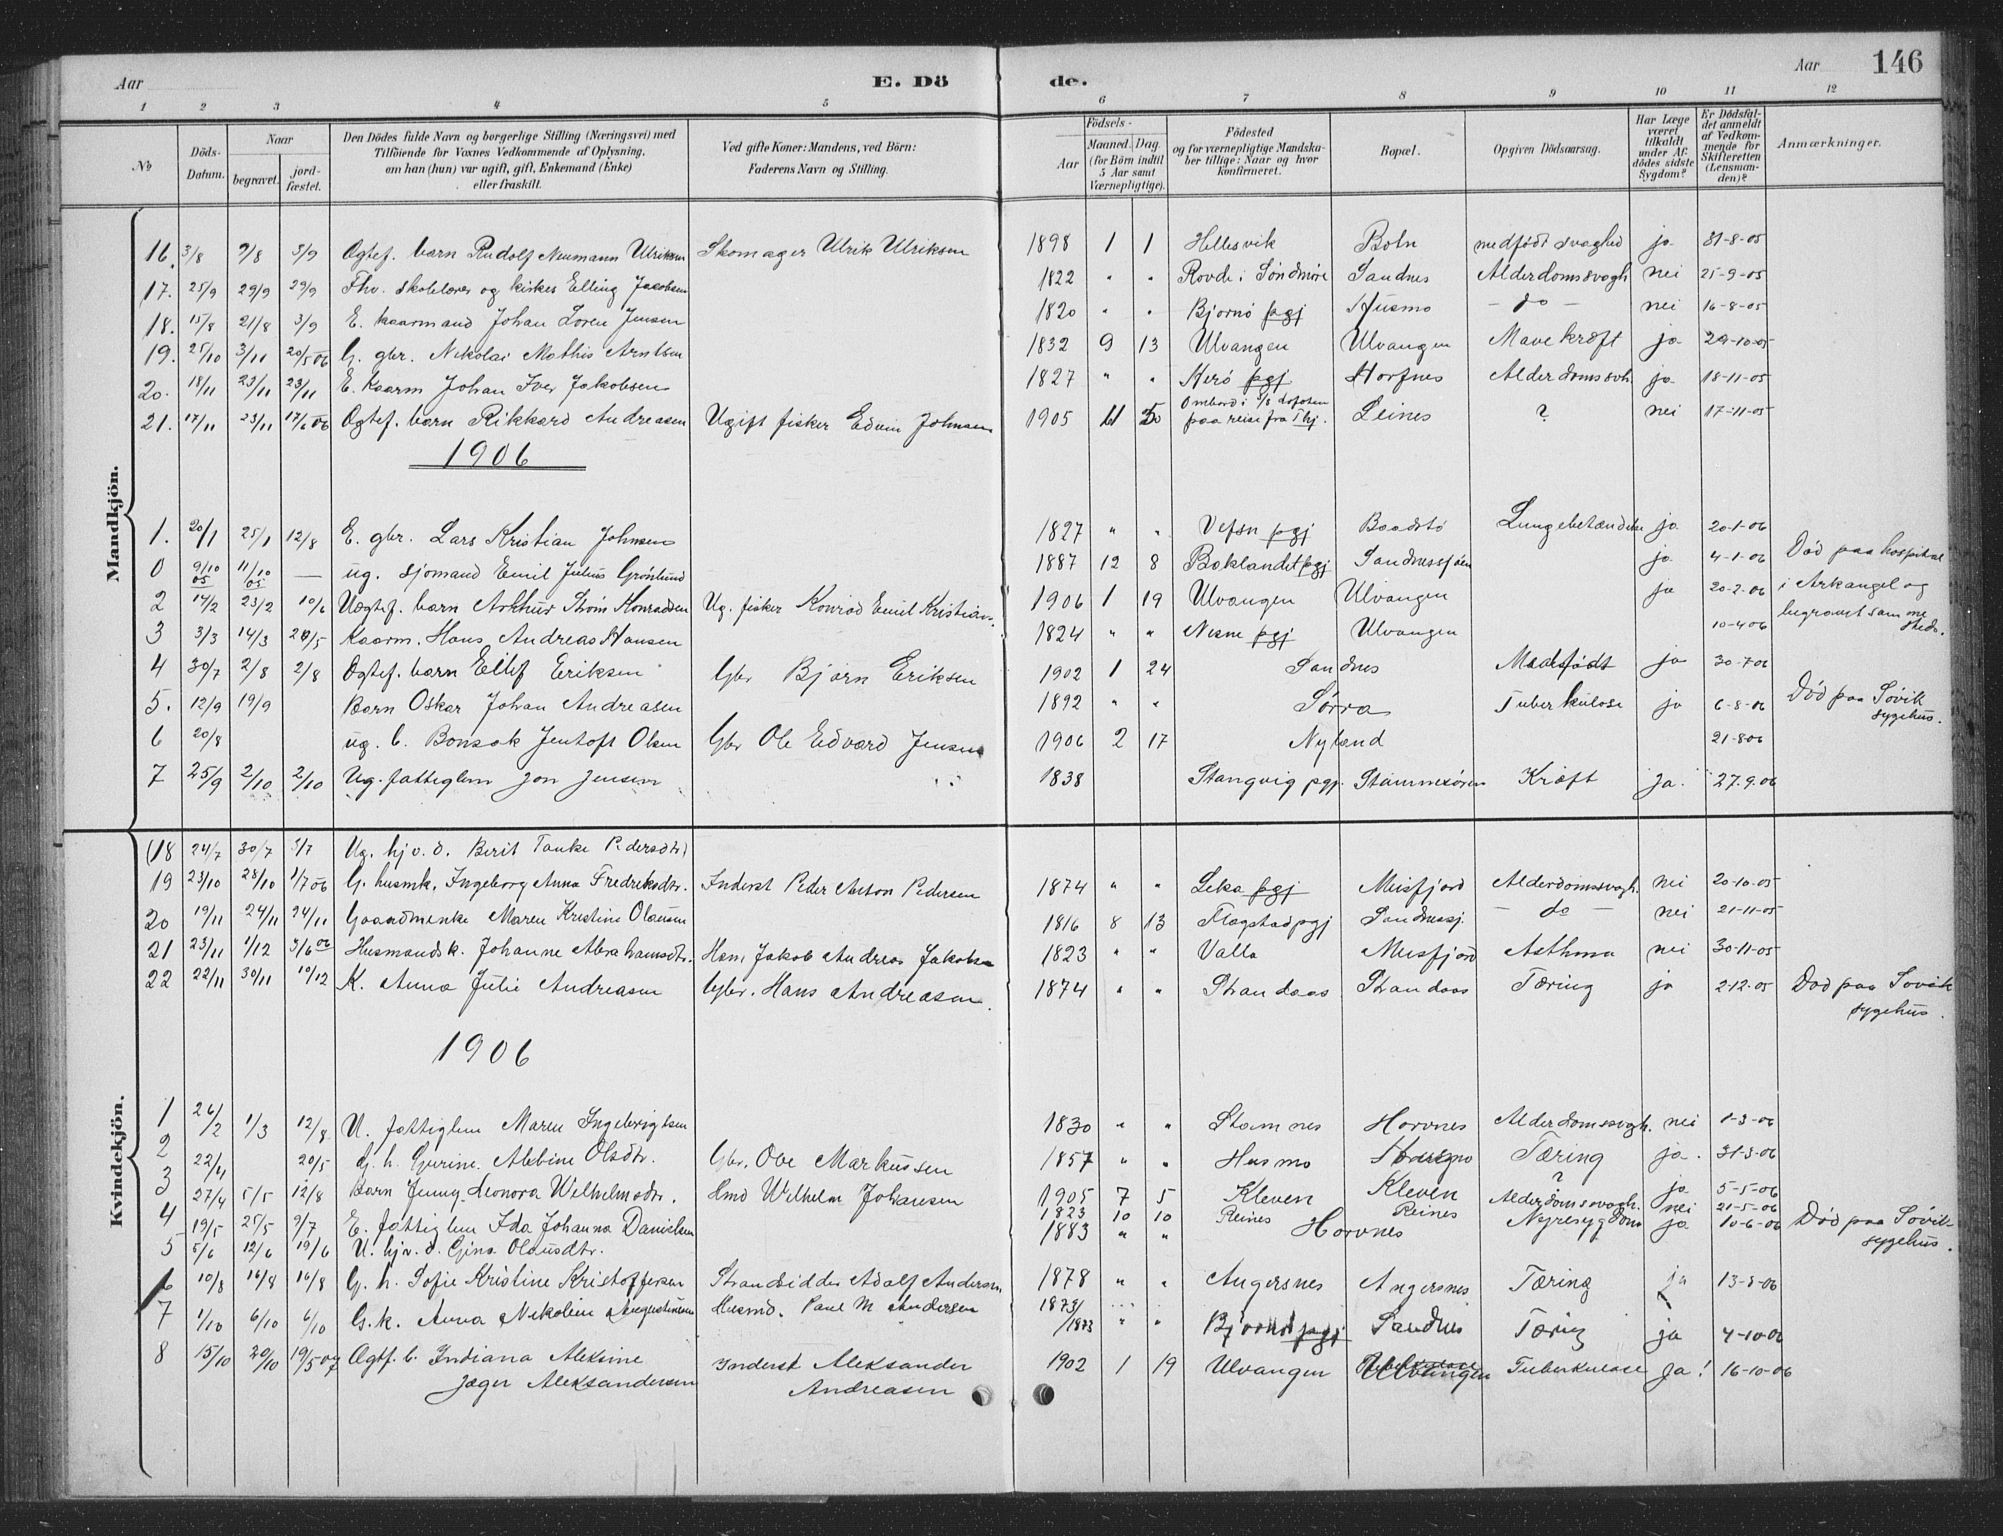 Aar E. Dö de. Aar 146
1 2 3 4 5 6 7 8 9 10 11 12
No
Döds-Datum.
Naar
begravet.
jordfæstet.
Den Dödes fulde Navn og borgerlige Stilling (Næringsvei) med
Tilföiende for Voxnes Vedkommende af Oplysning,
om han (hun) var ugift, gift, Enkemand (Enke)
eller fraskilt.
Ved gifte Koner: Mandens, ved Börn:
Faderens Navn og Stilling.
Födsels-
Aar
Maaned. Dag.
(for Börn indtil
5 Aar samt
Værnepligtige).
Födested
og for værnepligtige Mandska-
ber tillige: Naar og hvor
konfirmeret.
Bopæl.
Opgiven Dödsaarsag.
Har Læge
været
tilkaldt
under Af-
dödes sidste
Sygdom?
Er Dödsfal-
det anmeldt
af Vedkom-
mende for
Skifteretten
(Lensman-
den)?
Anmærkninger.
Mandkjön.
16. 3/8 9/8 3/9 Ogtef. barn Rudolf Neumann Ulriksen Skomager Ulrik Ulriksen 1898 1 1 Hellesvik Botn medfødt svaghed ja 31-8-05
17. 25/9 29/9 29/9 Fhv. skolelærer og kirkes Elling Jacobsen 1822 " " Rovde i Søndmøre Sandnes Alderdomssvagh nei 25-9-05
18. 15/8 21/8 3/9 E. kaarmand Johan Loren Jensen 1820 " " Bjornö pgj Husmo - do - nei 16-8-05
19. 25/10 3/11 20/5 06 G. gbr. Nikolai Mathis Arntsen 1832 9 13 Ulvangen Ulvangen Mavekræft ja 29-10-05
20. 18/11 23/11 23/11 E. kaarm Johan Iver Jakobsen 1827 " " Herö pgj Horfnes Alderdomssvh. ja 18-11-05
21. 17/11 23/11 17/6 06 Ogtef. barn Rikkard Andreasen Ugift fisker Edvin Johnsen 1905 11 Ombord i s/s Lofoten paa reise fra Thj. Leines ? nei 17-11-05
1906
1. 20/1 25/1 12/8 E. gbr. Lars Kristian Johnsen 1827 " " Vefsn pgj Baadstö Lungebetændelse ja 20-1-06
0 9/10 05 11/10 05 — ug. sjomand Emil Julius Grönlund 1887 12 8 Baklandet pgj Sandnessjöen ja 4-1-06 Död paa hospital
i Arkangel og
begravet samme
steds.
2 14/2 23/2 10/6 Uægtef. barn Arthur Ström Konradsen Ug. fisker Konrad Emil Kristians. 1906 1 19 Ulvangen Ulvangen ja 20-2-06
3 3/3 14/3 20/5 kaarm. Hans Andreas Hansen 1824 " " Nesne pgj Ulvangen 10-4-06
4 30/7 2/8 2/8 Ogtef. barn Ellef Eriksen Gbr Bjarn Eriksen 1902 1 24 Sandnes Medfødt ja 30-7-06
5. 12/9 19/9 Barn Oskar Johan Andreasen 1892 " " Sørra Tuberkulose ja 6-8-06 Död paa Sövik
sygehus.
6 20/8 ug. b. Bonsak Jentoft Olsen Gbr Ole Edvard Jensen 1906 2 17 Nyland 21-8 06
7 25/9 2/10 2/10 Ug. fattiglem Jon Jensen 1838 Stangvig pgj. Stamnesören Kræft ja. 27.9.06
Kvindekjön.
(18 24/7 30/7 3/7 Ug. hj v. d. Berit Tanke Pedersdtr)
19 23/10 28/10 1/7 06 G. husmk. Ingeborg Anna Fredriksdtr. Inderst Peder Anton Pedersen 1874 " " Leka pgj Meisfjord Alderdomssvagh. nei 20-10-05
20 19/11 24/11 24/11 Gaardmenke Maren Kristine Olausen 1816 8 13 Flagstad pgj Sandnessj. - do - nei 21-11-05
21 23/11 1/12 3/6 06 Husmandsk. Johanne Abrahamsdtr. Hsm. Jakob Andreas Jakobsen 1823 " " Valla Meisfjord Asthma nei 30-11-05
22 22/11 30/11 10/12 K. Anna Julie Andreasen Gbr. Hans Andreasen. 1874 " " Strandaas Strandaas Tæring ja 2-12-05 Död paa Sövik
sygehus.
1906
1 26/2 1/3 12/8 U. fattiglem Maren Ingebrigtsen 1830 " " Stamnes Horvnes Alderdomssvagh. nei 1-3-06
2 22/4 20/5 G. h. Gurine Albine Olsdtr. Gbr. Ove Markussen 1857 " " Husmo Tæring ja. 31-3-06
3 27/4 5/5 12/8 Barn Jenny Leonora Wilhelmsdtr. Hmd Wilhelm Johansen 1905 7 5 Kleven Kleven ? ja 5-5-06
4 19/5 25/5 9/7 E. fattiglem Ida Johanna Danielsen 1823 10 10 Reines Reines Alderdomssvagh. nei 21-5-06
5 5/6 12/6 19/6 U. hjv. d. Gina Olausdtr. 1883 " " Horvnes Nyresygdom ja 10-6-06 Död paa Sövik
sygehus.
6 10/8 16/8 16/8 G. h. Sofie Kristine Kristoffersen Strandsidder Adolf Andersen 1878 " " Angersnes Angersnes Tæring ja 13-8-06
7 1/10 6/10 6/10 G.k. Anna Nikoline Augustinusen Husmd. Paul M. Andersen 1873/ /1873 " " Bjornö pgj Sandnes Tæring ja 4-10-06
8 15/10 20/10 19/5 07 Ogtf. b. Indiana Aleksine
Jæger Aleksandersen Inderst Aleksander
Andreasen 1902 1 19 Ulvangen Ulvangen Tuberkulose ja! 16-10-06